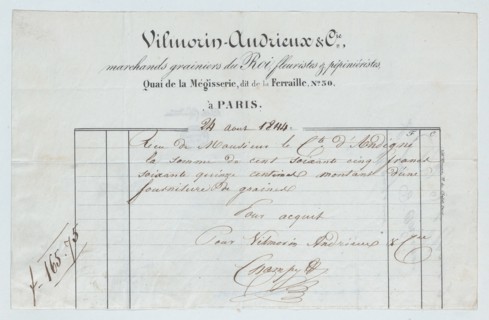 Vilmorin-Andrieux & Cie,
marchands grainiers du Roi, fleuristes & pépiniéristes,
Quai de la Mégisserie, dit de la Ferraille, No 30,
à PARIS.
24 aout 1844.
F. C.
Reçu de Monsieur le Cte d'Andigné
la somme de cent soixante cinq francs
soixante quinze centimes montant d'une
fourniture de graines
Pour acquit
Pour Vilmorin Andrieux & Cie
f. 165.75